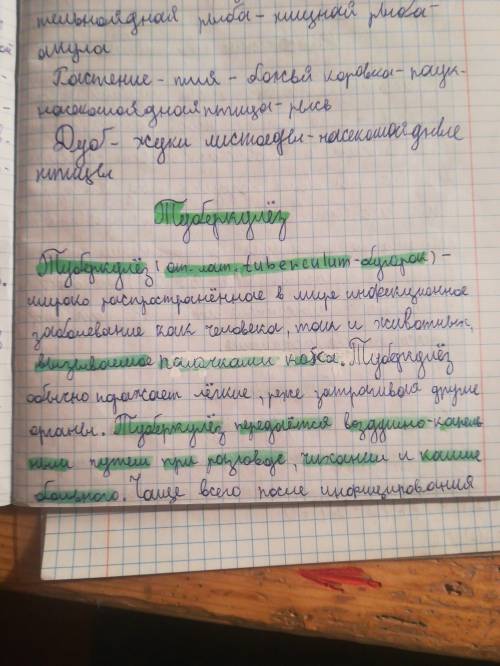 тельноядная рыба - хищная рыба -
акула
Растение - тля - божья коровка - паук -
насекомоядная птица - рысь
Дуб - жуки листоеды - насекомоядные
птицы
Туберкулёз
Туберкулёз (от лат. tuberculum - бугорок) -
широко распространённое в мире инфекционное
заболевание как человека, так и животных,
вызываемое палочками коха. Туберкулёз
обычно поражает лёгкие, реже затрагивая другие
органы. Туберкулёз передаётся воздушно-капель
ным путём при разговоре, чихании и кашле
больного. Чаще всего после инфицирования